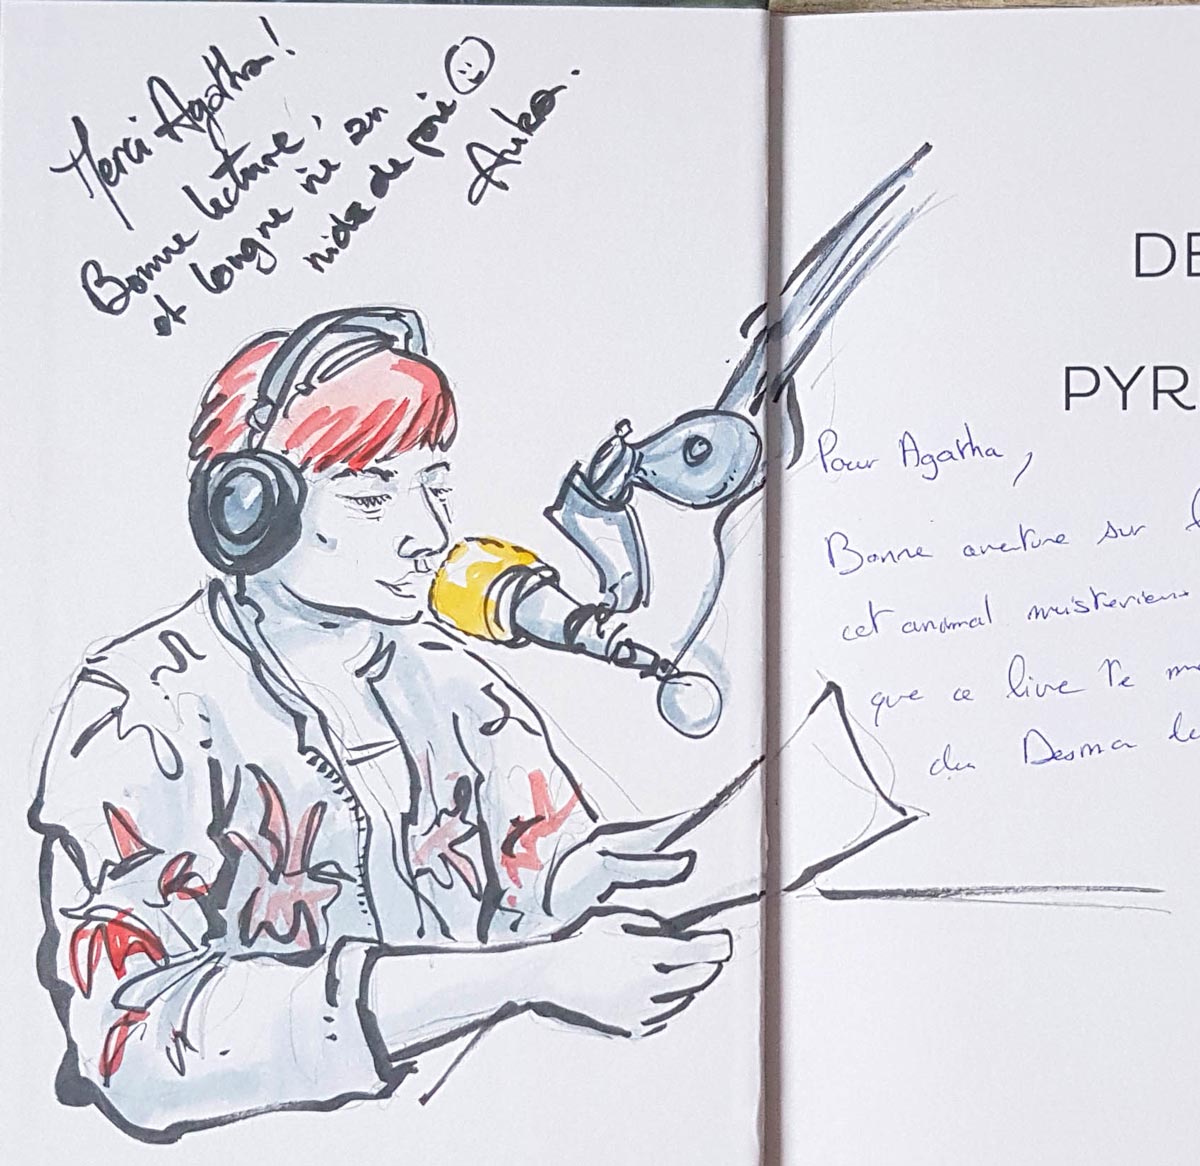 Merci Agatha!
Bonne lecture,
et longue vie au
nids de pie
Auka.
DE
PYR
Pour Agatha,
Bonne aventure sur
cet animal misterieux
que ce livre te
du Desman